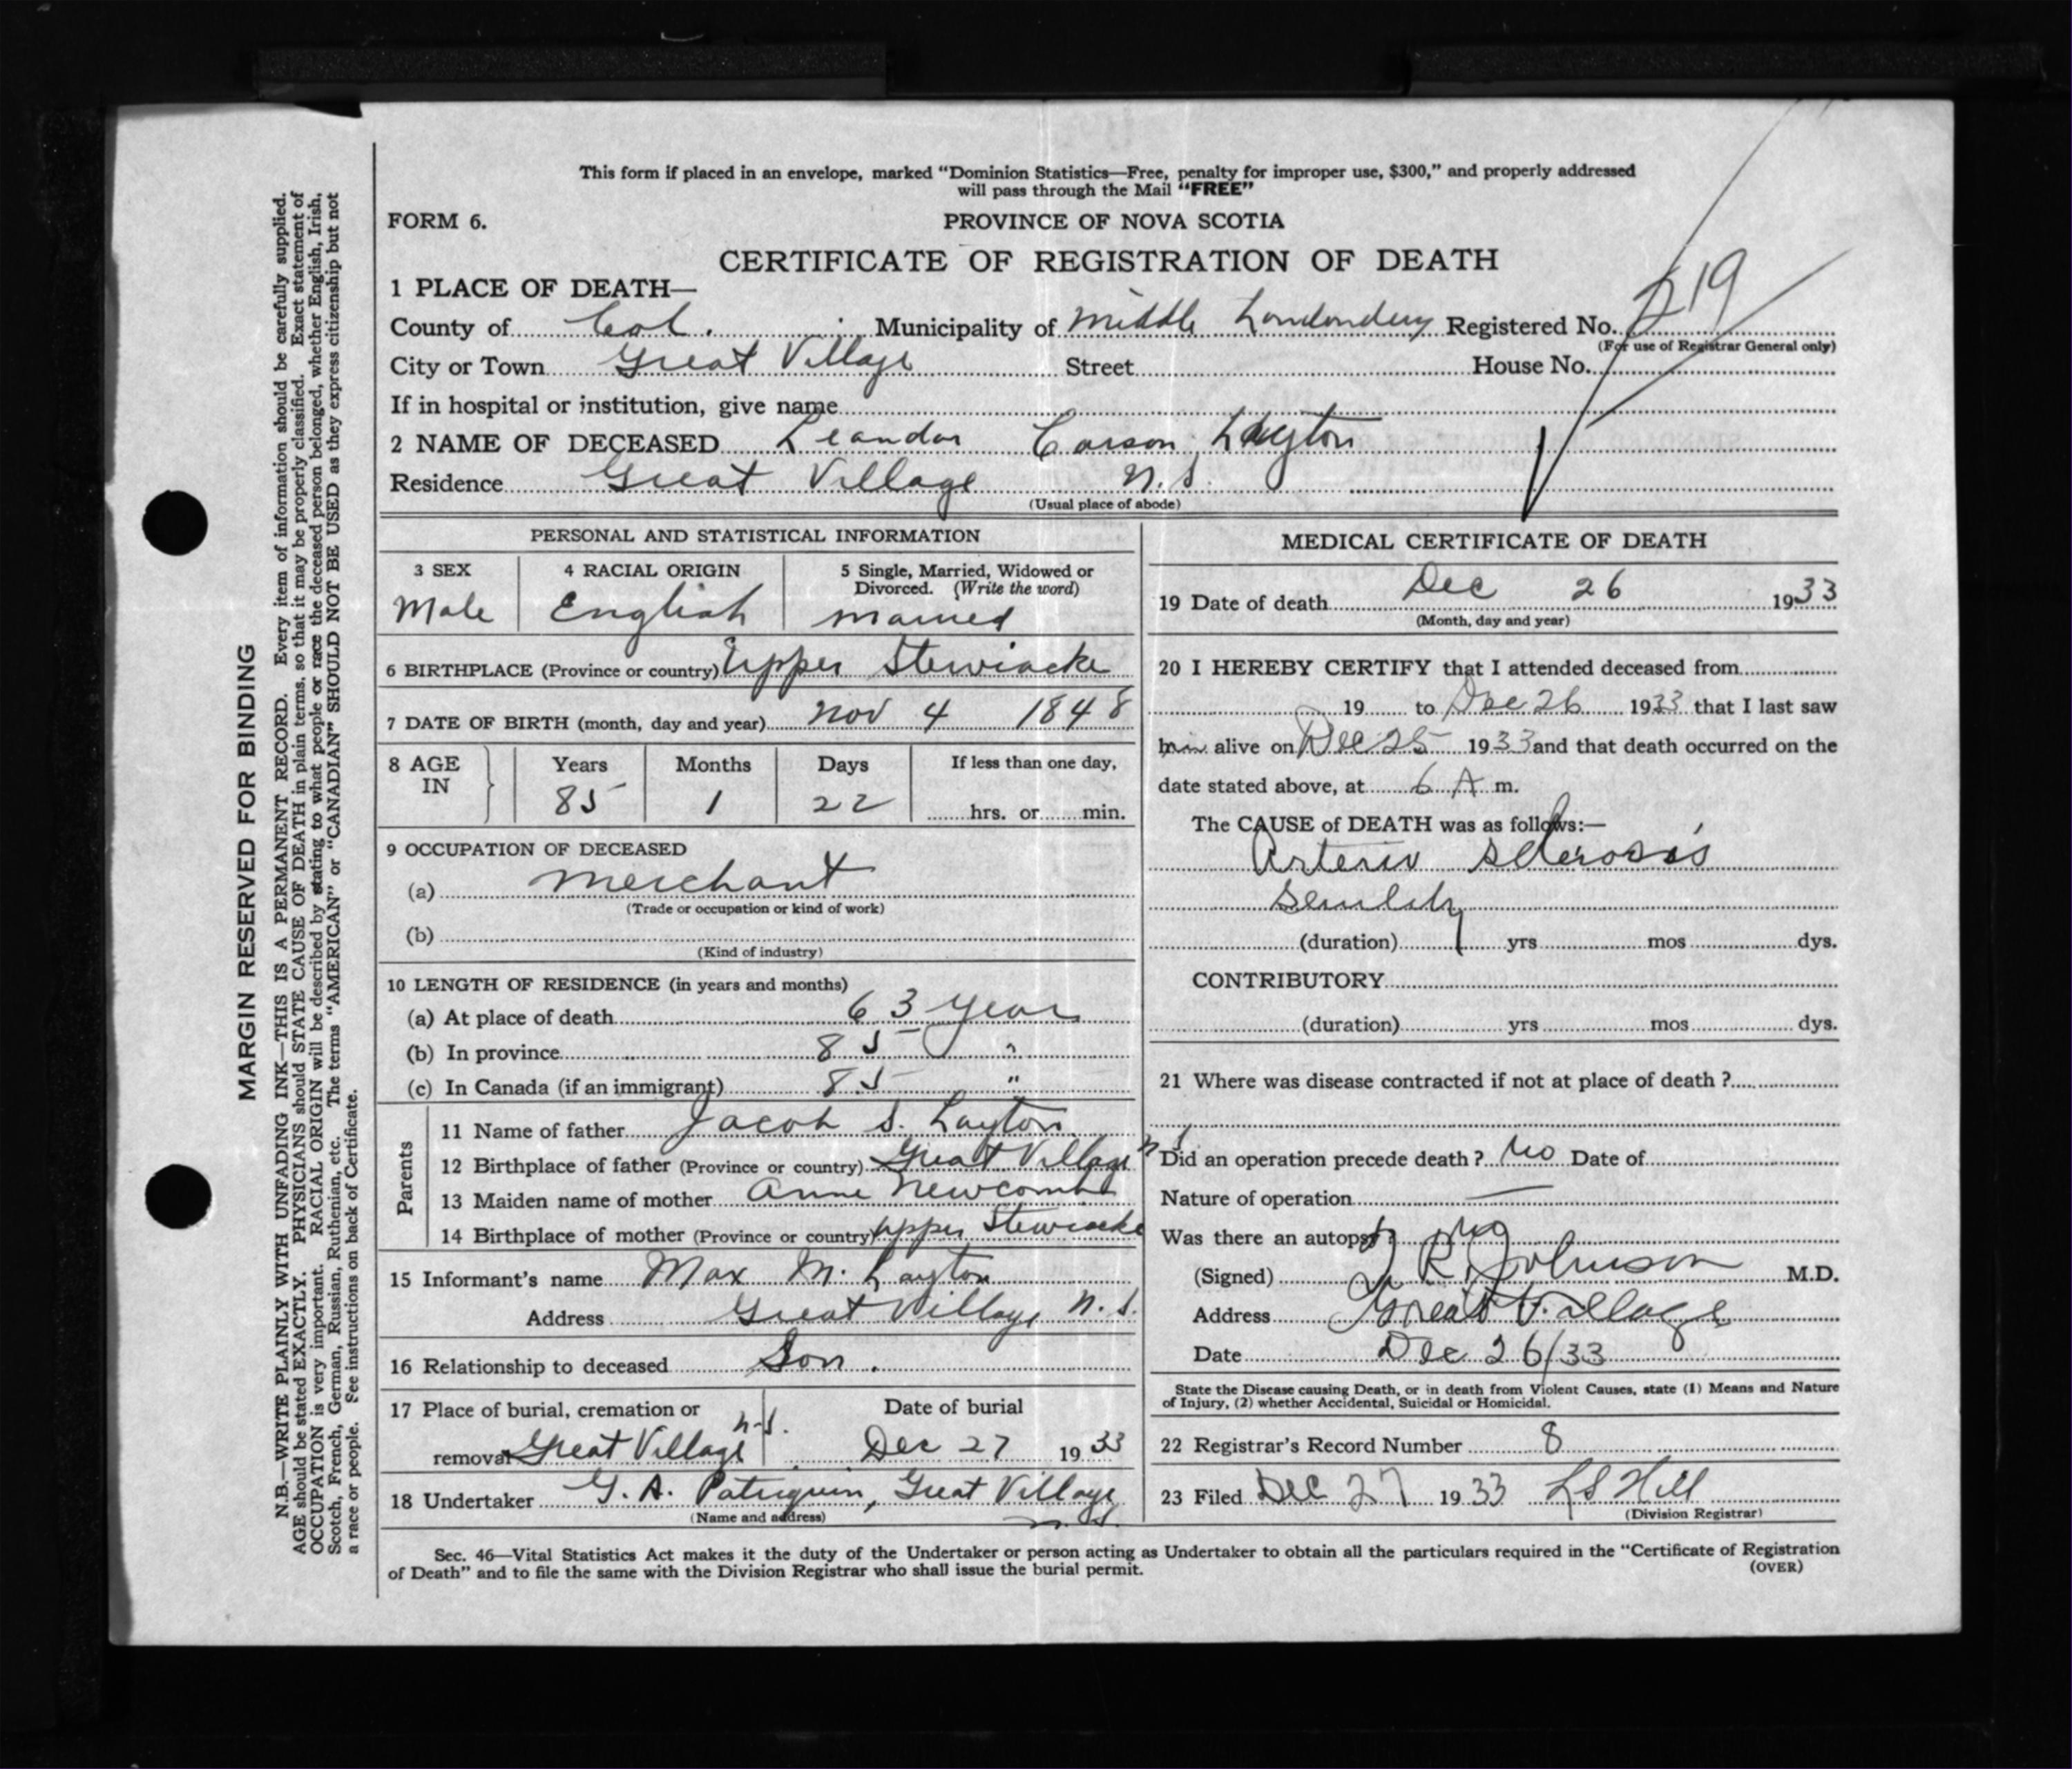 This form if placed in an envelope, marked “Dominion Statistics—Free, penalty for improper use, $300,” and properly addressed
will pass through the Mail “FREE”
FORM 6.
PROVINCE OF NOVA SCOTIA
CERTIFICATE OF REGISTRATION OF DEATH
1 PLACE OF DEATH—
County of Col. Municipality of Middle Londonderry Registered No. 219
(For use of Registrar General only)
City or Town Great Village Street House No.
If in hospital or institution, give name
2 NAME OF DECEASED Leander Carson Layton
Residence Great Village N.S.
(Usual place of abode)
PERSONAL AND STATISTICAL INFORMATION
3 SEX 4 RACIAL ORIGIN 5 Single, Married, Widowed or
Divorced. (Write the word)
Male English Married
6 BIRTHPLACE (Province or country) Upper Stewiacke
7 DATE OF BIRTH (month, day and year) Nov 4 1848
8 AGE Years Months Days If less than one day,
IN
85 1 22 hrs. or min.
9 OCCUPATION OF DECEASED
(a) Merchant
(Trade or occupation or kind of work)
(b)
(Kind of industry)
10 LENGTH OF RESIDENCE (in years and months)
(a) At place of death 63 year
(b) In province 85 "
(c) In Canada (if an immigrant) 85 "
Parents
11 Name of father Jacob S. Layton
12 Birthplace of father (Province or country) Great Village N.S.
13 Maiden name of mother Anne Newcomb
14 Birthplace of mother (Province or country) Upper Stewiacke
15 Informant’s name Max M. Layton
Address Great Village N.S.
16 Relationship to deceased Son.
17 Place of burial, cremation or Date of burial
removal Great Village N.S. Dec 27 1933
18 Undertaker G. A. Patriquin, Great Village
N.S.
(Name and address)
MEDICAL CERTIFICATE OF DEATH
19 Date of death Dec 26 1933
(Month, day and year)
20 I HEREBY CERTIFY that I attended deceased from
19 to Dec 26 1933 that I last saw
him alive on Dec 25 1933 and that death occurred on the
date stated above, at 6 A m.
The CAUSE of DEATH was as follows:—
Arterio Sclerosis
Senility
(duration) yrs mos dys.
CONTRIBUTORY
(duration) yrs mos dys.
21 Where was disease contracted if not at place of death ?
Did an operation precede death ? No Date of
Nature of operation —
Was there an autopsy ? No
(Signed) T. R. Johnson M.D.
Address Great Village
Date Dec 26/33
State the Disease causing Death, or in death from Violent Causes, state (1) Means and Nature
of Injury, (2) whether Accidental, Suicidal or Homicidal.
22 Registrar’s Record Number 8
23 Filed Dec 27 1933 L S Hill
(Division Registrar)
Sec. 46—Vital Statistics Act makes it the duty of the Undertaker or person acting as Undertaker to obtain all the particulars required in the “Certificate of Registration
of Death” and to file the same with the Division Registrar who shall issue the burial permit.
(OVER)
MARGIN RESERVED FOR BINDING
N.B.—WRITE PLAINLY WITH UNFADING INK—THIS IS A PERMANENT RECORD. Every item of information should be carefully supplied.
AGE should be stated EXACTLY. PHYSICIANS should STATE CAUSE OF DEATH in plain terms, so that it may be properly classified. Exact statement of
OCCUPATION is very important. RACIAL ORIGIN will be described by stating to what people or race the deceased person belonged, whether English, Irish,
Scotch, French, German, Russian, Ruthenian, etc. The terms “AMERICAN” or “CANADIAN” SHOULD NOT BE USED as they express citizenship but not
a race or people. See instructions on back of Certificate.